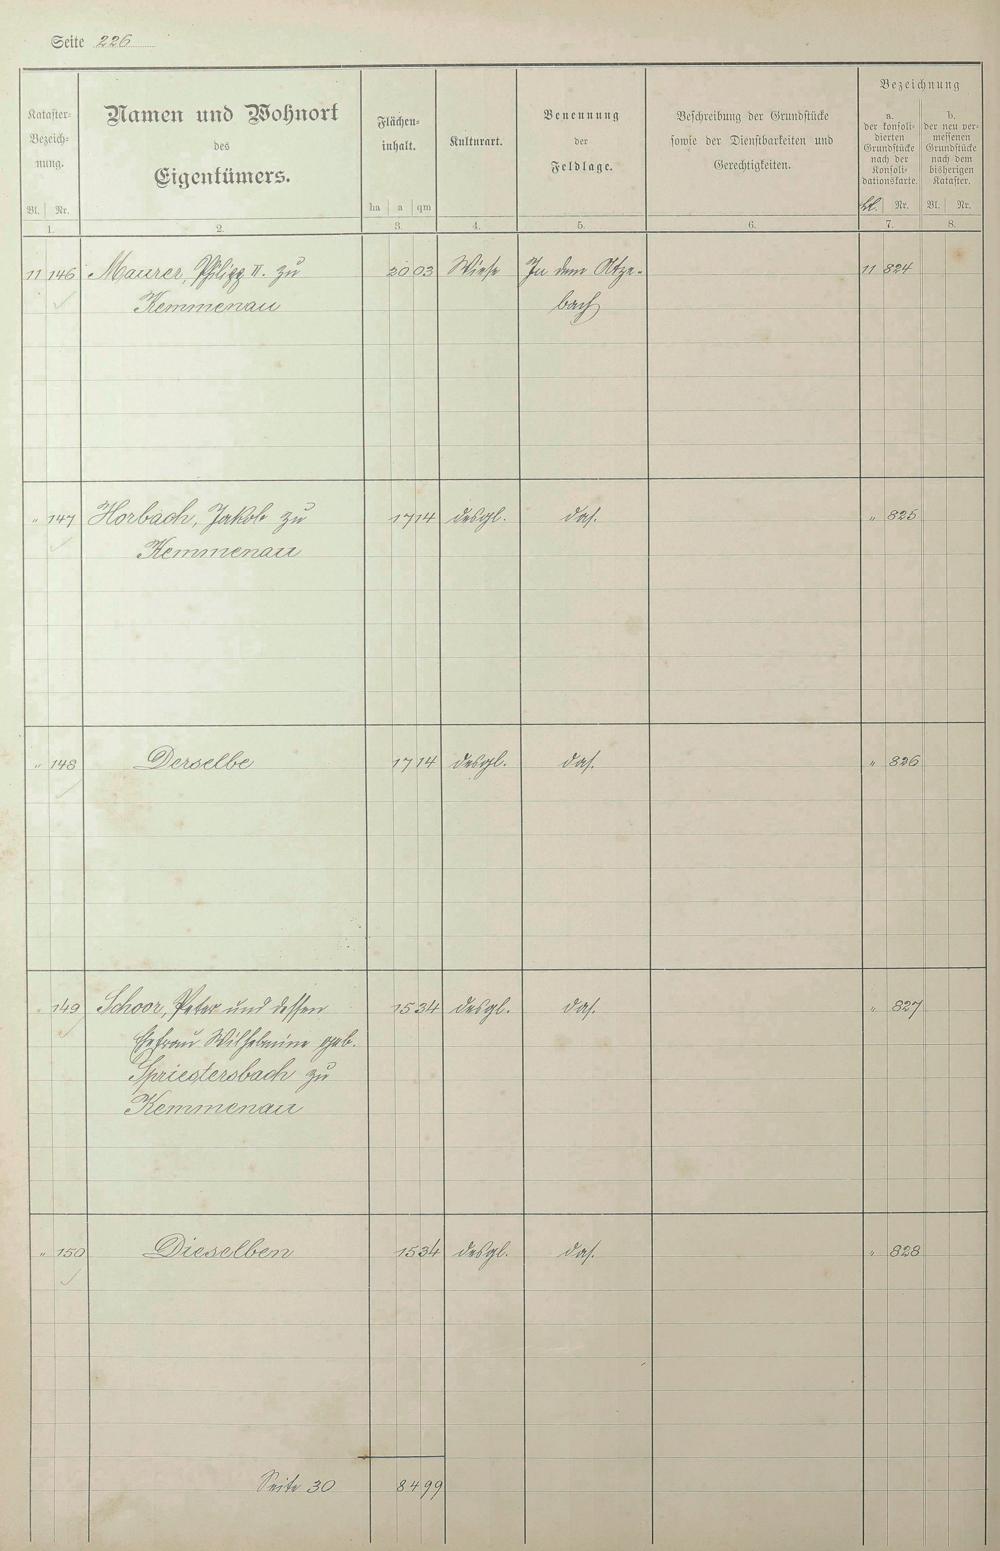 Seite 226
Kataster-
Bezeich-
nung.
Bl. Nr.
1.
Namen und Wohnort
des
Eigentümers.
2.
Flächen-
inhalt.
ha a qm
3.
Kulturart.
4.
Benennung
der
Feldlage.
5.
Beschreibung der Grundstücke
sowie der Dienstbarkeiten und
Gerechtigkeiten.
6.
Bezeichnung
a.
der konsoli-
dierten
Grundstücke
nach der
Konsoli-
dationskarte.
Bl. Nr.
7.
b.
der neu ver-
messenen
Grundstücke
nach dem
bisherigen
Kataster.
Bl. Nr.
8.
11 146 Maurer, Philipp II. zu 20 03 Wiese In dem Atze- 11 824
Kemmenau bach
" 147 Horbach, Jakob zu 17 14 desgl. das. " 825
Kemmenau
" 148 Derselbe 17 14 desgl. das. " 826
" 149 Schoor, Peter und dessen 15 34 desgl. das. " 827
Ehefrau Wilhelmine geb.
Spriestersbach zu
Kemmenau
" 150 Dieselben 15 34 desgl. das. " 828
Seite 30 84 99